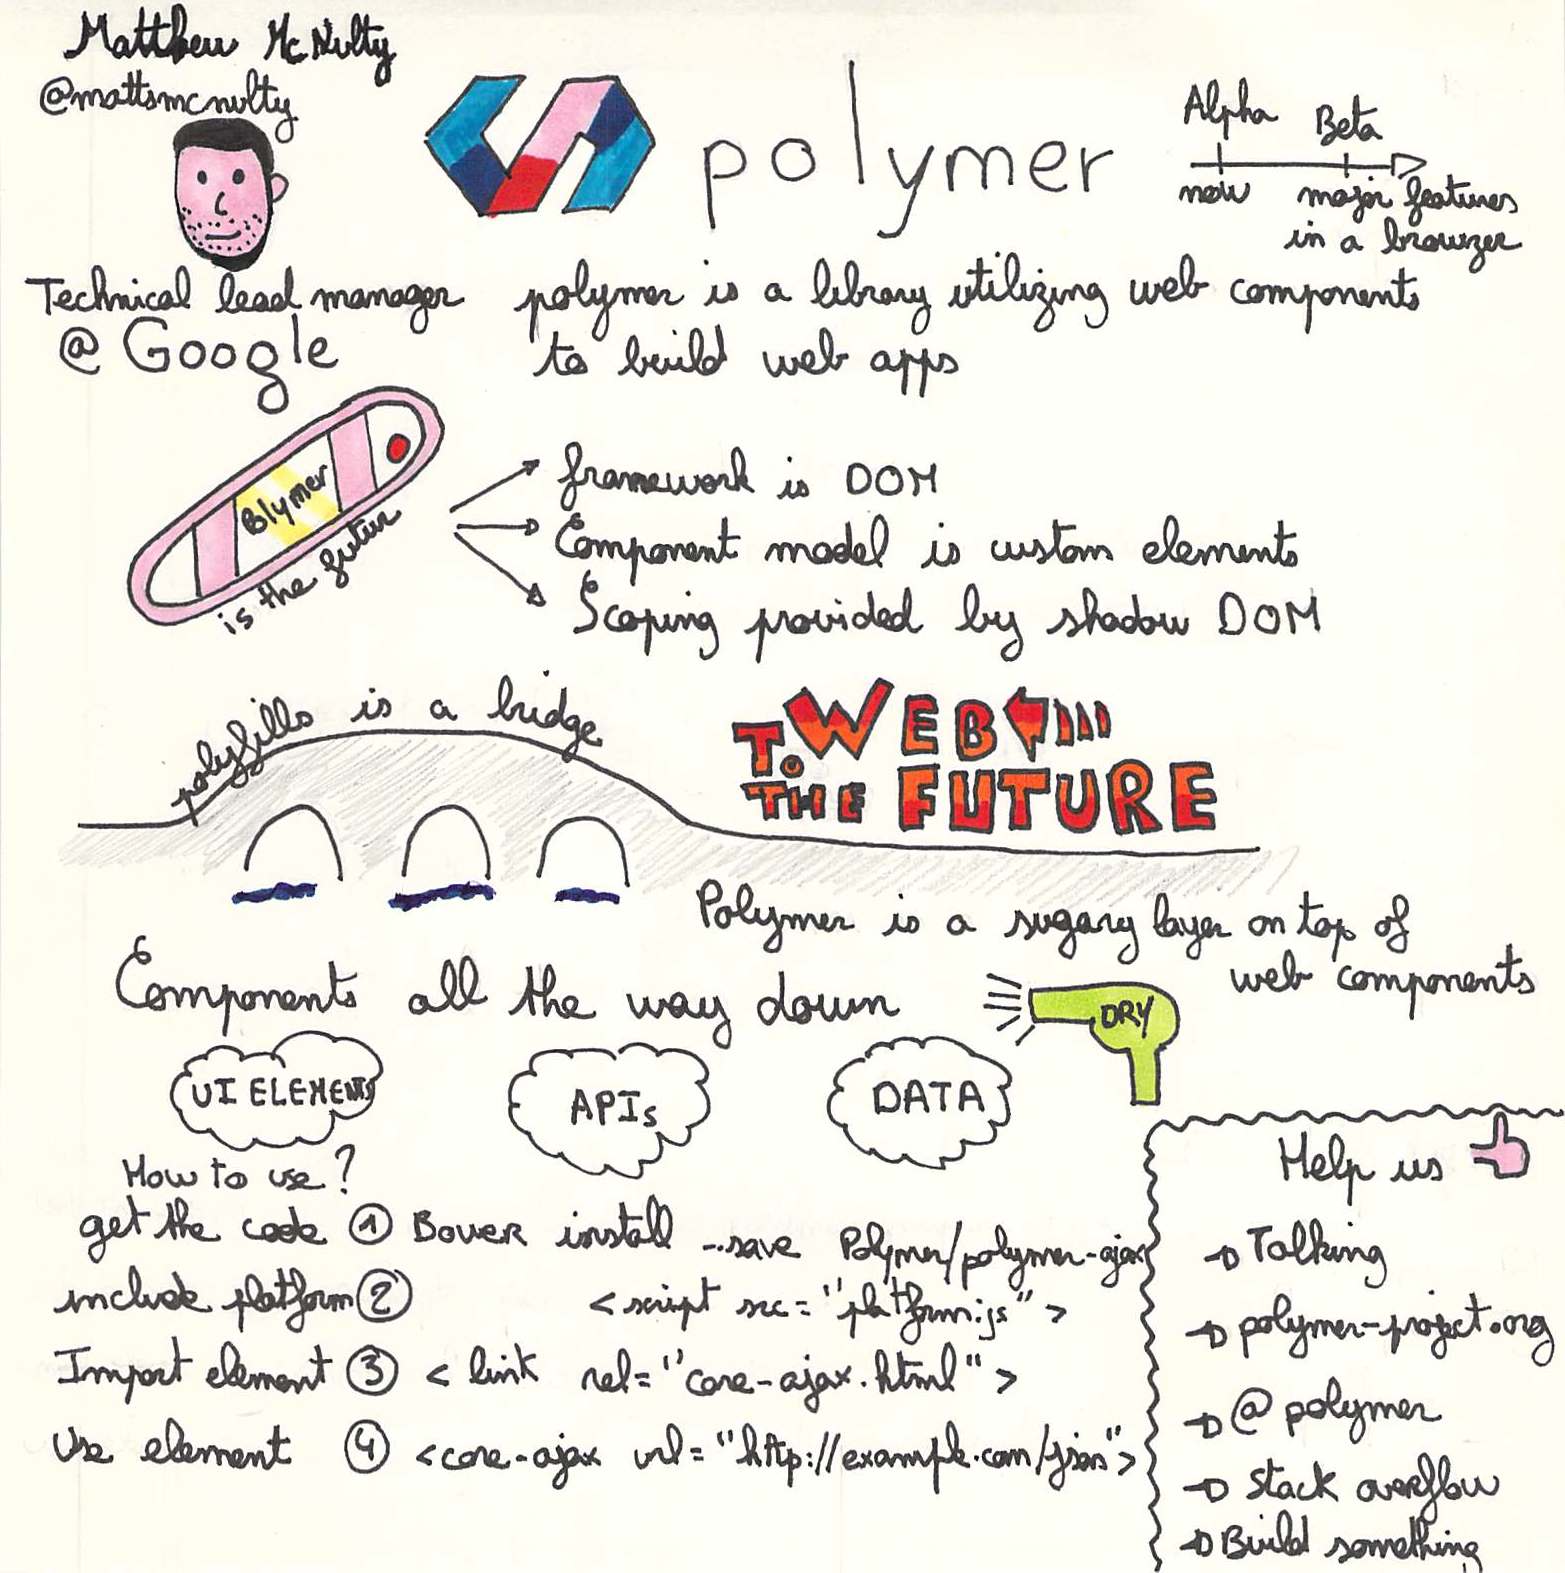 Matthew McNulty
@mattsmcnulty
polymer
Alpha Beta
now major features
in a browzer
Technical lead manager
@ Google
polymer is a library utilizing web components
to build web apps
Blymer
is the futur
framework is DOM
Component model is custom elements
Scoping provided by shadow DOM
polyfills is a bridge
WEB
TO
THE FUTURE
Polymer is a sugary layer on top of
web components
Components all the way down
DRY
UI ELEMENTS
APIs
DATA
How to use?
get the code 1 Bower install --save Polymer/polymer-ajax
include platform 2 <script src="platform.js">
Import element 3 <link rel="core-ajax.html">
Use element 4 <core-ajax url="http://example.com/json">
Help us
Talking
polymer-project.org
@polymer
stack overflow
Build something